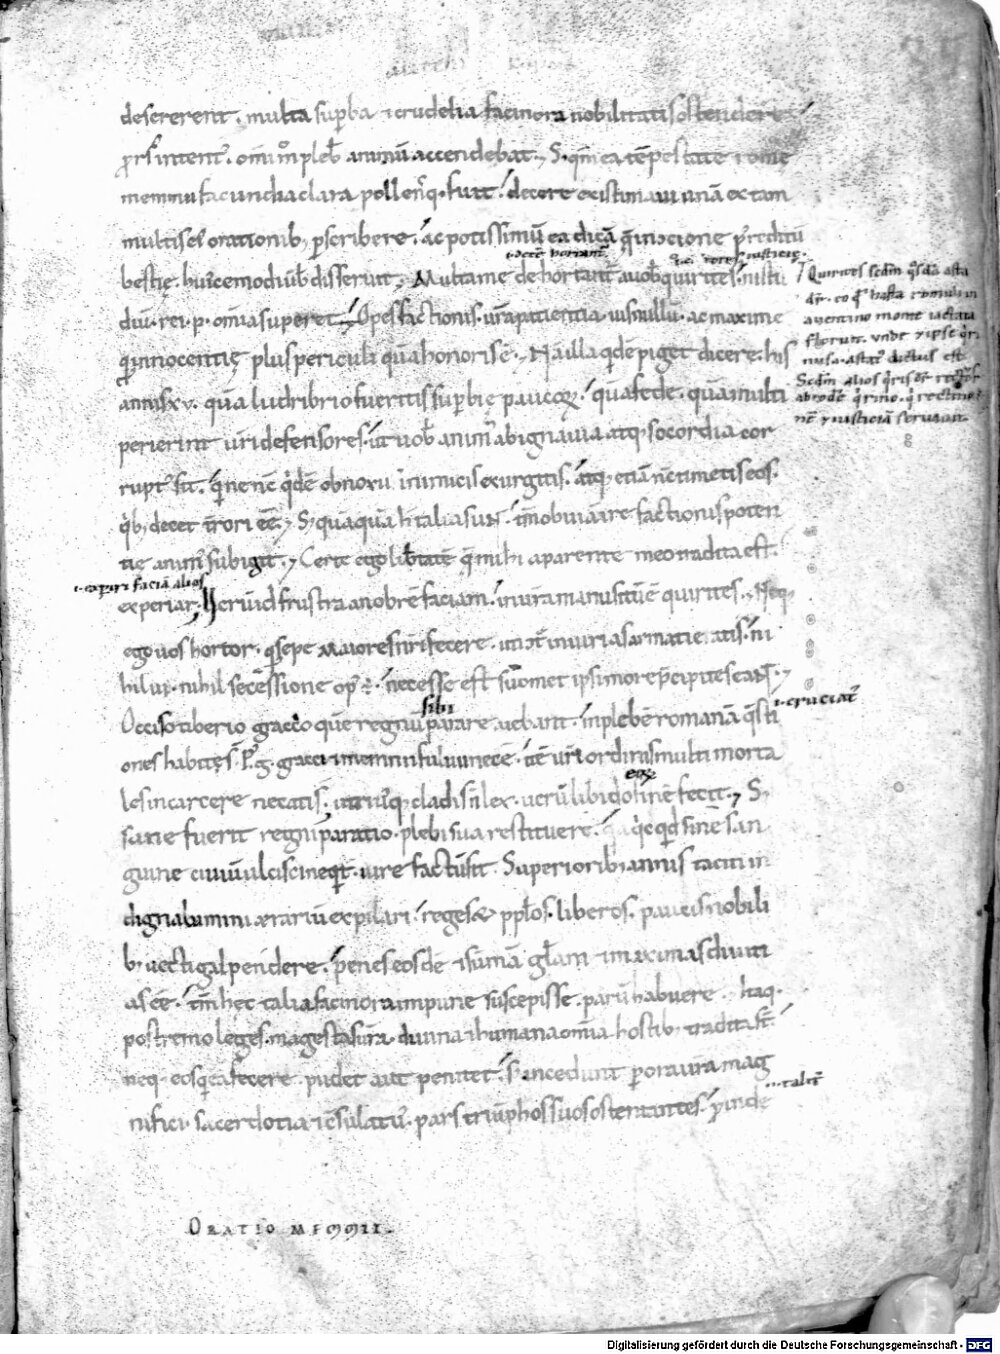 desererent. multa supba & crudelia facinora nobilitatis ostendere
prsus intent'. omi m° pleb' animū accendebat. S; qm ea tēpestate rome
memmii facundia clara pollensq. fuit. decere existimavi unā ex tam
multis ei' orationib; pscribere. ac potissimū ea dicā que incōcione p' reditū
bestię. huiscemodi ub' disseruit. Multa me dehortant' a uob' quirites. ni studiū
rei. p. omia superet. Opes factionis. ura patientia. ius nullū. ac maxime
q innocentię plus periculi quā honoris ē. Nā illa qdē piget dicere. his
annis xv. quā ludibrio fueritis supbię paucoꝝ. quā fede. quā multi
perierint uri defensores. ut uob' anim' ab ignauia atq. socordia cor
rupt' sit. qui ne nc qdē obnoxiis inimicis exurgitis. atq. etiā nc timetis eos.
qb; decet trori eē. S; quāquā hec talia sunt. tm obuiā ire factionis poten
tie anim' subigit. Certe ego libtatē q mihi a parente meo tradita est.
experiar. Verū id frustra an ob rē faciam. in ura manu sitū ē quirites. Neq.
ego uos hortor. q sepe maiores nri fecere. uti ct' iniurias armati eatis. ni
hil ui. nihil secessione op' ē. necesse est suomet ipsi more pcipites eant.
Occiso tiberio graccho quē regnū parare aiebant. in plebē romanā qsti
ones habitę st'. P' g. gracci & m. fuluii necē. itē uri ordinis multi morta
les in carcere necati st'. utriusq. cladis n lex. uerū libido finē fecit. S;
sane fuerit regni paratio. plebi sua restituere. qcqd sine san
guine ciuiū ulcisci neqt'. iure factū sit. Superiorib; annis taciti in
dignabamini ærariū expilari. reges & pplos liberos. paucis nobili
b; uectigal pendere. penes eosdē & sūmā glam & maximas diuiti
as eē. tm hęc talia facinora impune suscepisse. parū habuere. Itaq.
postremo leges. magestas ura. diuina & humana omia hostib; tradita st'.
neq. eos q ea fecere pudet aut penitet. s; incedunt p ora ura mag
nifici. sacerdotia & csulatus. pars triūphos suos ostentantes. pinde
Quirites scdm qsdā asta
aventino monte iactata
Scdm alios
i. expiri faciā alios
sibi
i. cruciat'
eoꝝ
ORATIO MEMMII.
Digitalisierung gefördert durch die Deutsche Forschungsgemeinschaft - DFG